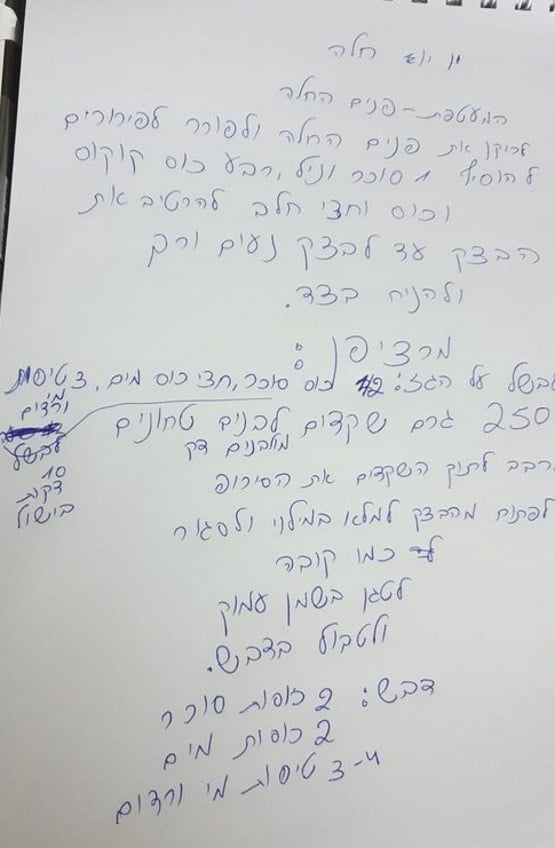 חלה
המעטפת - פנים החלה
לרוקן את פנים החלה ולפורר לפירורים
להוסיף 1 סוכר וניל, רבע כוס קוקוס
וכוס וחצי חלב להרטיב את
הבצק עד לבצק נעים ורק
ולהניח בצד.
מרציפן:
לבשל על הגז: 1/2 כוס סוכר, חצי כוס מים, 3 טיפות
מי ורדים
לבשל
10
דקות
בישול
250 גרם שקדים לבנים טחונים
מולבנים דק
לתוק השקדים את הסירופ
לפתוח מהבצק למלאו במילוי ולסגור
כמו קובה
לטגן בשמן עמוק
ולטבול בדבש.
דבש: 2 כוסות סוכר
2 כוסות מים
3-4 טיפות מי ורדים